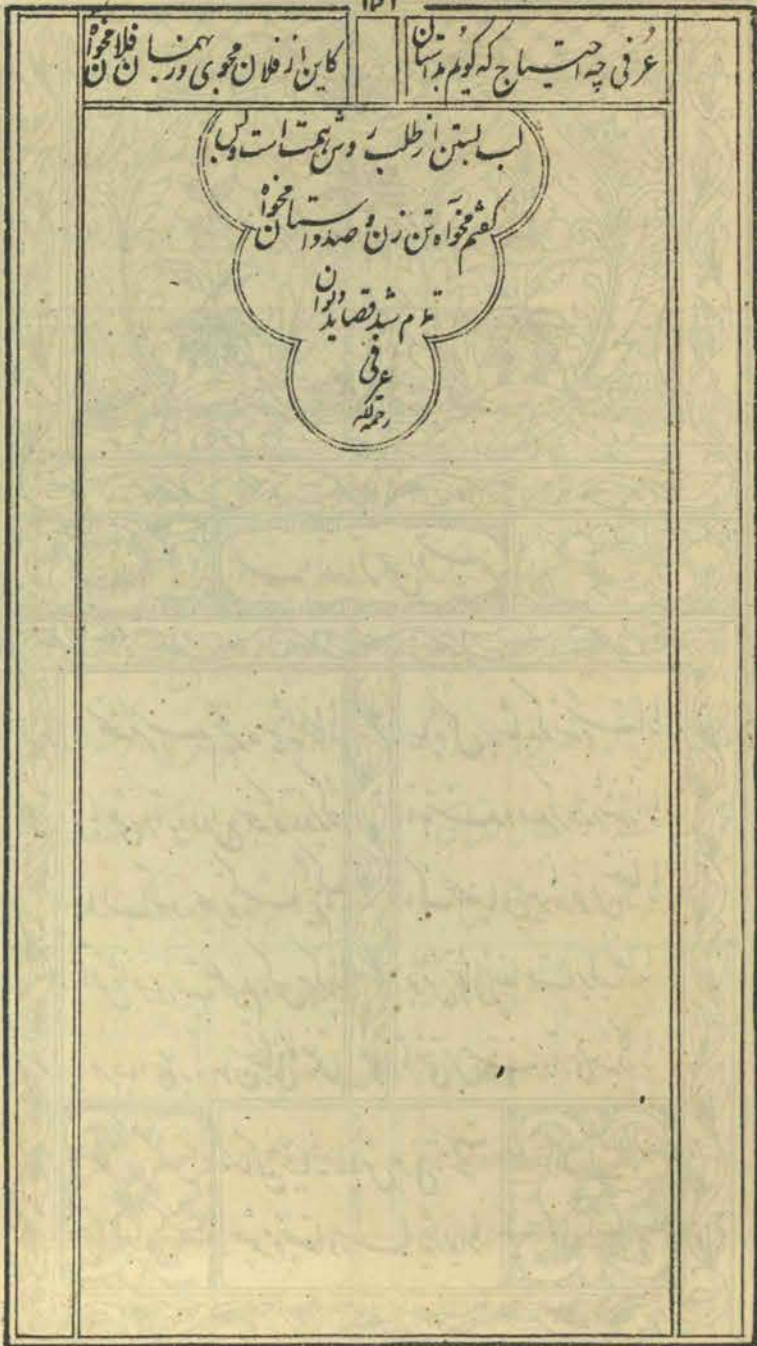 عرفی چه احتیاج که گویم بداستان
کاین از فلان مجوی و ز بهمان فلان مخواه
لب بستن از طلب روش همت است و بس
گفتم مخواه تن زن و صد داستان مخواه
تمام شد قصاید دیوان
عرفی
رحمه الله